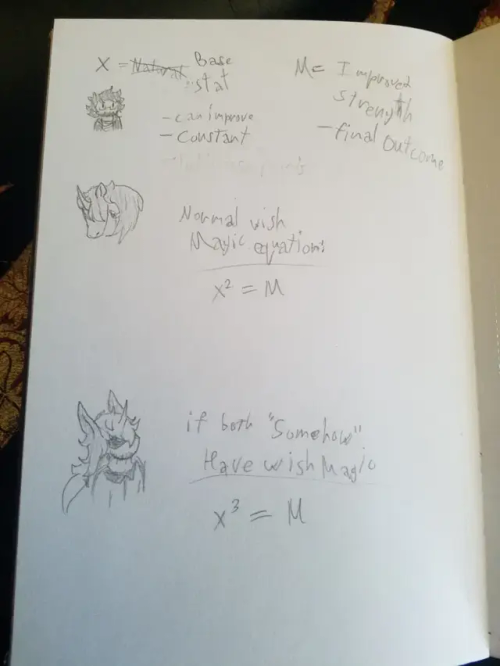 X = Natural Base
stat
- can improve
- Constant
M = Improved
strength
- final outcome
Normal wish
Magic equations
x² = M
if both "Somehow"
Have wish Magic
x³ = M